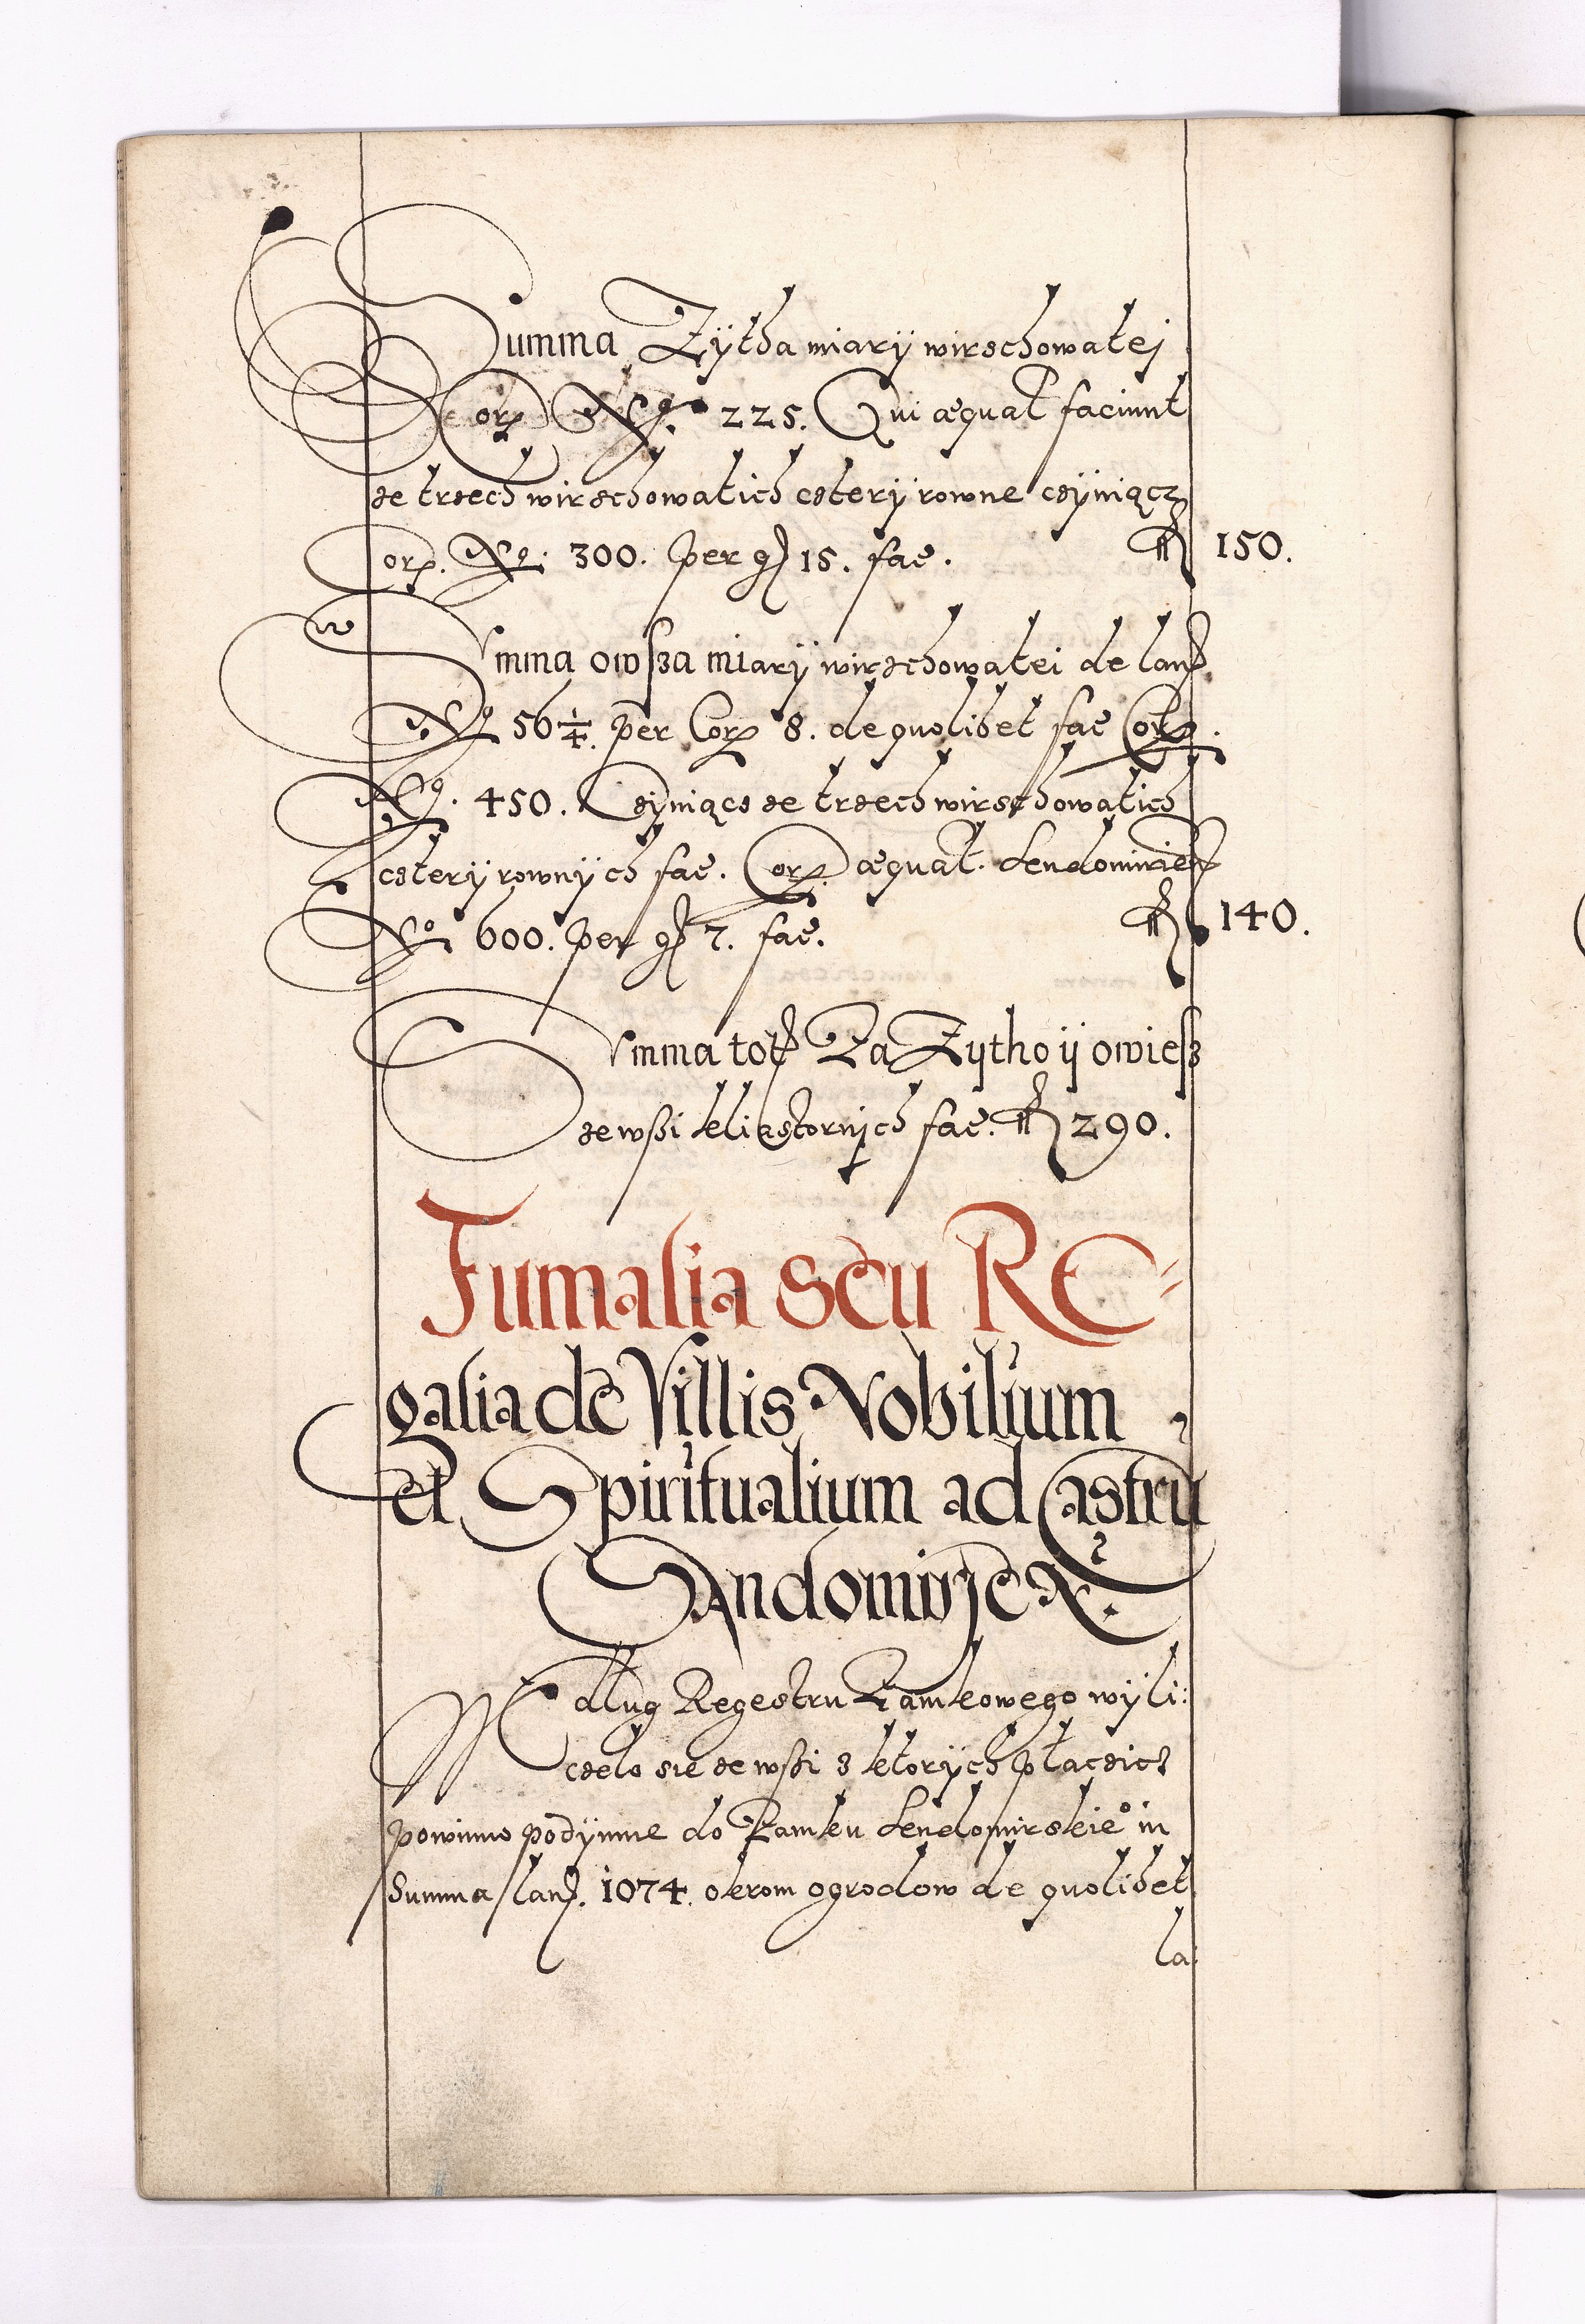 Summa Zÿtha miarÿ wirzchowatej
Corp. No. 225. Qui æqual faciunt
ze trzech wirzchowatich czterÿ rowne czÿniącz
Corp. No. 300. per g 15. fac. fl 150.
Summa owsza miarÿ wirzchowatei de lan
No 56 1/4. per Corp 8. de quolibet fac Corp.
No. 450. Czÿniącz ze trzech wirzchowatich
czterÿ rownÿch fac. Corp. æqual. Sendomirien
No 600. per g 7. fac. fl 140.
Summa tot Za Zÿtho ÿ owiesz
ze wszi kliasztornÿch fac. fl 290.
Fumalia seu RE=
galia de Villis Nobilium
et Spiritualium ad Castrū
SAndomirieN.
Wedlug Regestru Zamkowego wÿli:
czelo sie ze wszi z ktorÿch placzicz
powinno podÿmne do Zamku Sendomirskieº in
Summa lan. 1074. okrom ogrodow de quolibet
la: